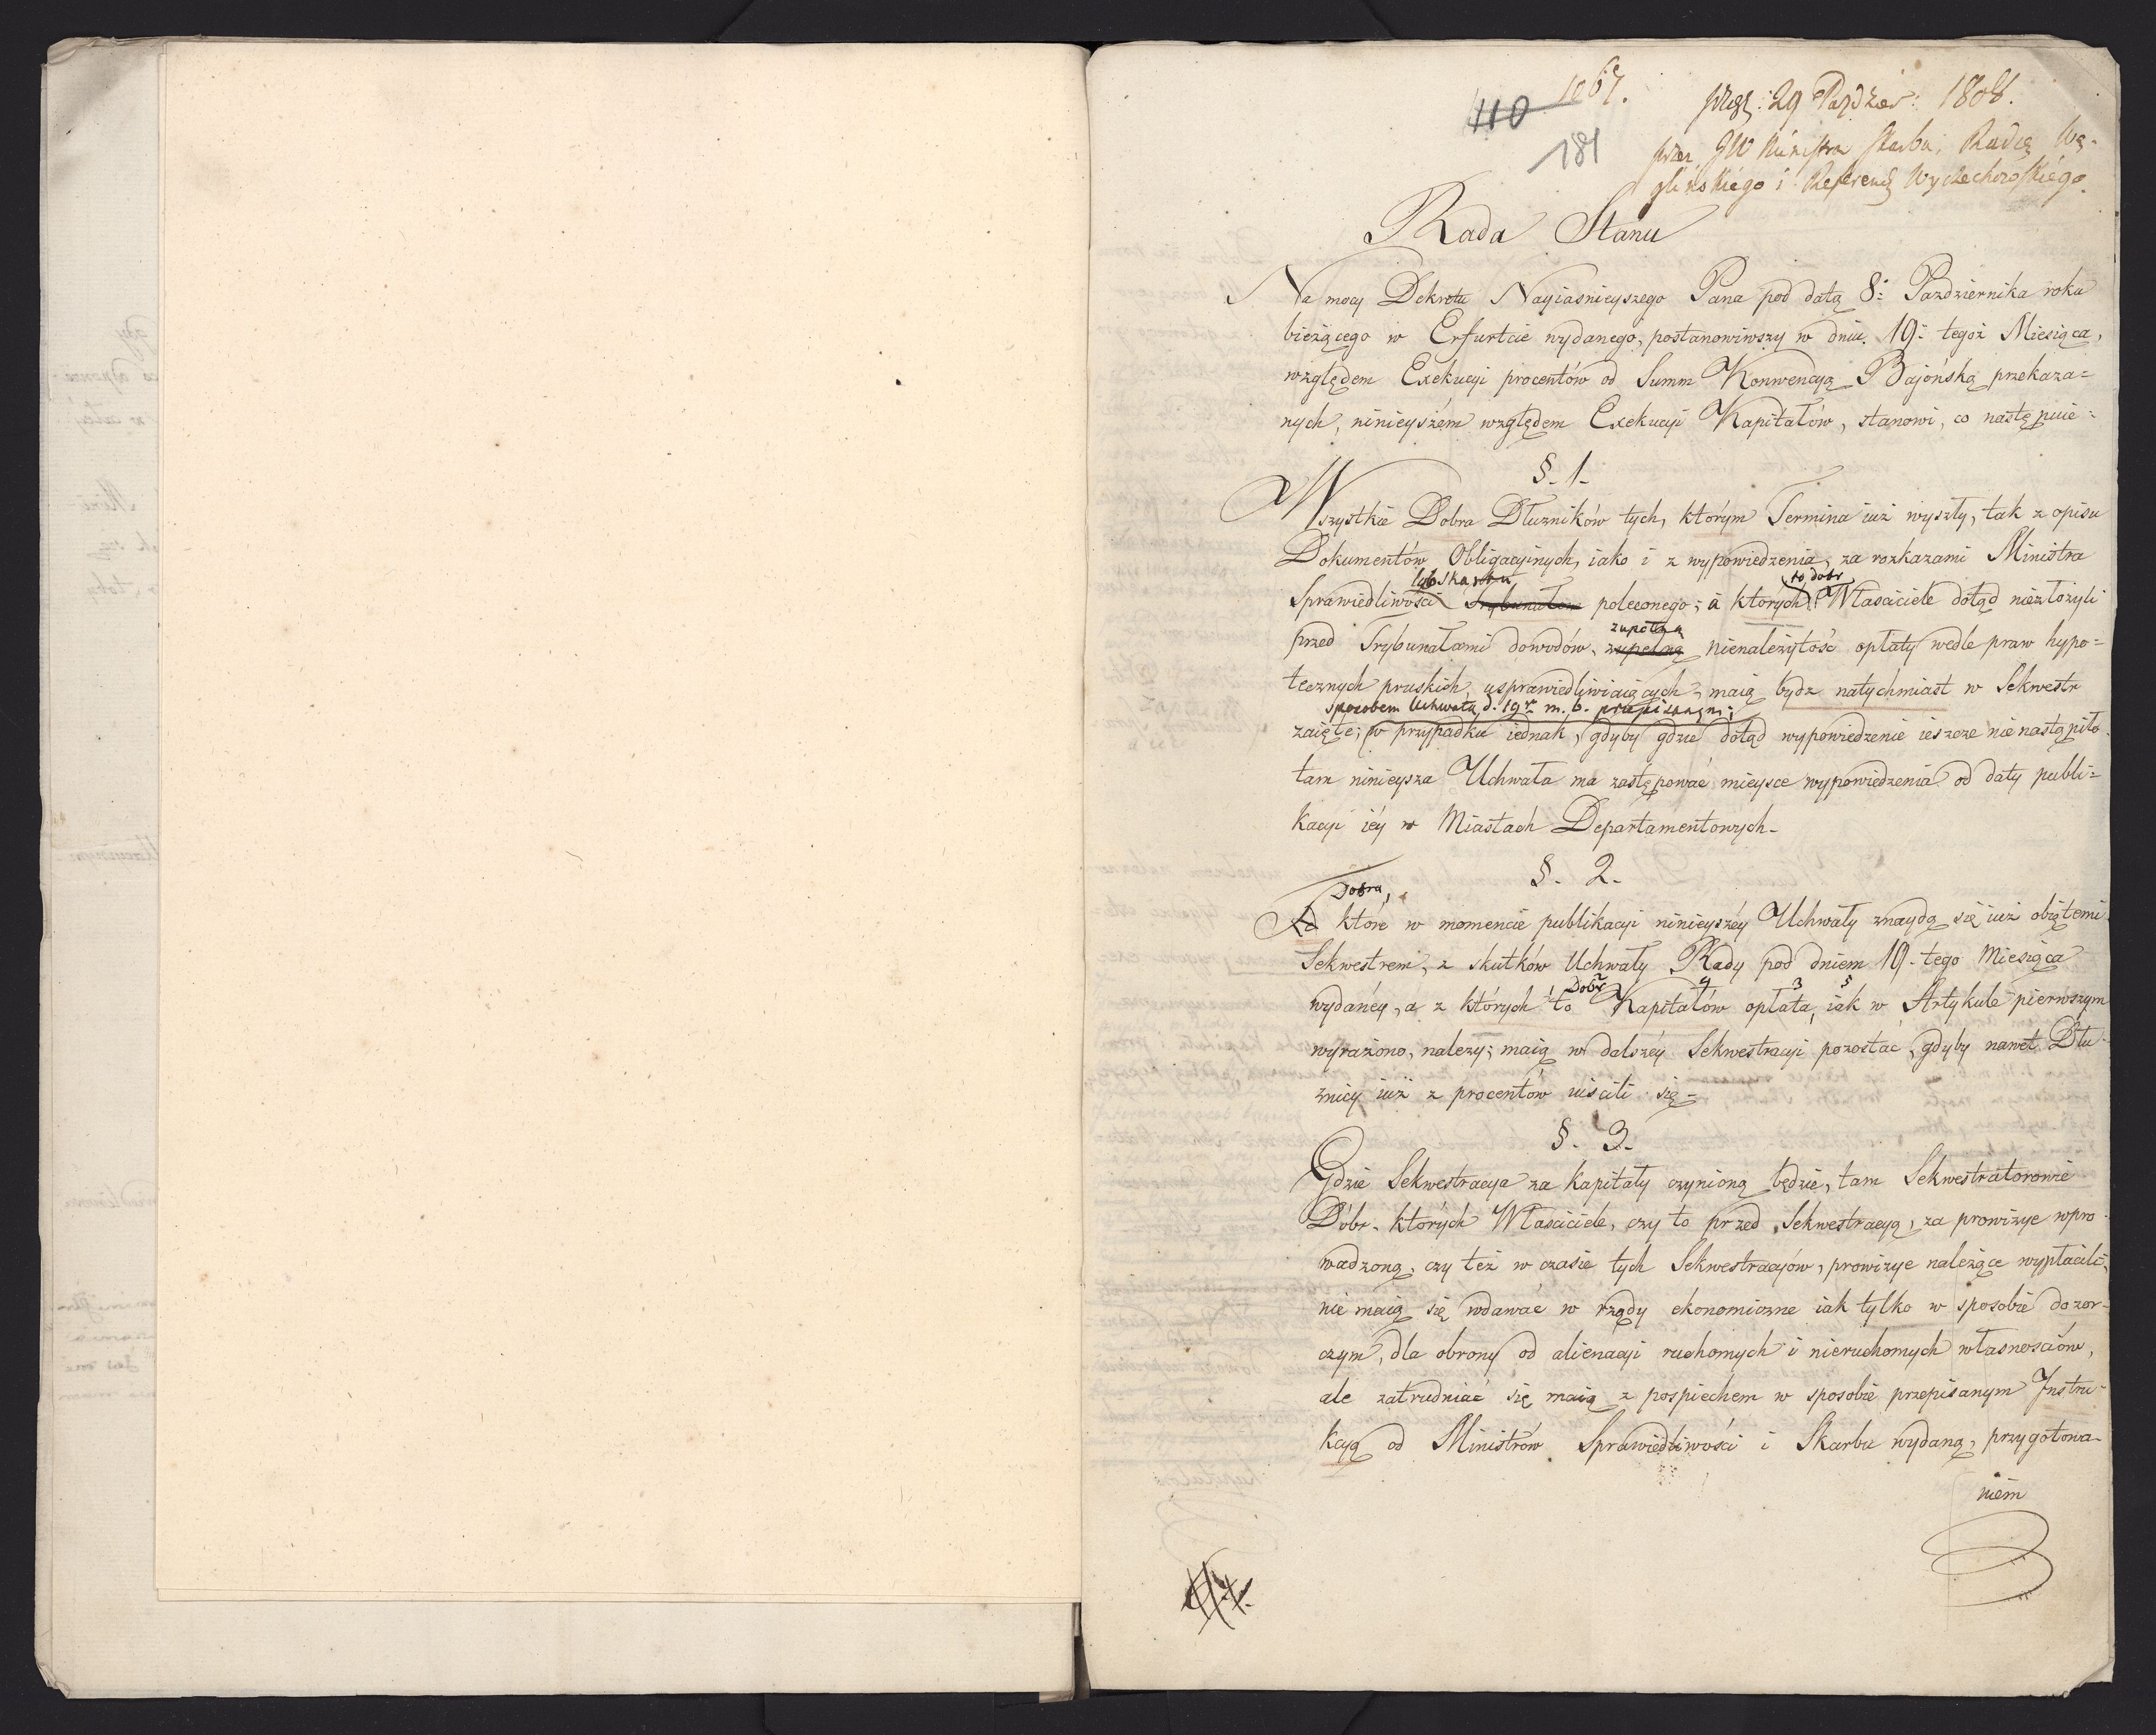 1067.
110
181
przez 29 Paździer: 1808.
przez JW Ministra Skarbu, Radcę Wę-
glińskiego i Referend Wyczechowskiego.
Rada Stanu
Na mocy Dekretu Nayiasnieyszego Pana pod datą 8: Pazdziernika roku
bieżącego w Erfurtcie wydanego, postanowiwszy w dniu 19: tegoż Miesiąca,
względem Exekucyi procentów od Summ Konwencyą Bajońską przekaza=
nych, ninieyszém względem Exekucyi Kapitałów, stanowi, co następuie-
§. 1.
Wszystkie Dobra Dłuzników tych, którym Termina iuż wyszły, tak z opisu
Dokumentów Obligacyinych, iako i z wypowiedzenia, za rozkazami Ministra
lub Skarbu
to dobr
Sprawiedliwości Trybunałom poleconego; a których Własciciele dotąd niezłożyli
zupełną
przed Trybunałami dowodów, zupełną nienależytość opłaty wedle praw hypo=
tecznych pruskich, usprawiedliwiaiących, maią bydz natychmiast w Sekwestr
sposobem Uchwałą d. 19 m. b. przepisanym;
zaięte; w przypadku iednak, gdyby gdzie dotąd wypowiedzenie ieszcze nie nastąpiło
tam ninieysza Uchwała ma zastępować mieysce wypowiedzenia od daty publi=
kacyi iéy w Miastach Departamentowych-
§. 2.
Dobra,
które w momencie publikacyi ninieyszéy Uchwały znaydą się iuż obiętemi
Sekwestrem, z skutków Uchwały Rady pod dniem 19- tego Miesiąca
Dobr 4 3 5
wydanéy, a z których to Kapitałów opłata, iak w Artykule pierwszym
wyrażono, należy; maią w dalszéy Sekwestracyi pozostać, gdyby nawet Dłu-
żnicy iuż z procentów uiscili się-
§. 3.
Gdzie Sekwestracya za Kapitały czynioną będzie, tam Sekwestratorowie
Dóbr, których Własciciele, czy to przed Sekwestracyą, za prowizye wpro-
wadzoną, czy też w czasie tych Sekwestracyów, prowizye należące wypłacili,
nie maią się wdawać w rządy ekonomiczne iak tylko w sposobie dozor-
czym, dla obrony od alienacyi ruchomych i nieruchomych własnosciów,
ale zatrudniać się maią z pospiechem w sposobie przepisanym Instru-
kcyą od Ministrów Sprawiedliwości i Skarbu wydaną, przygotowa-
niem